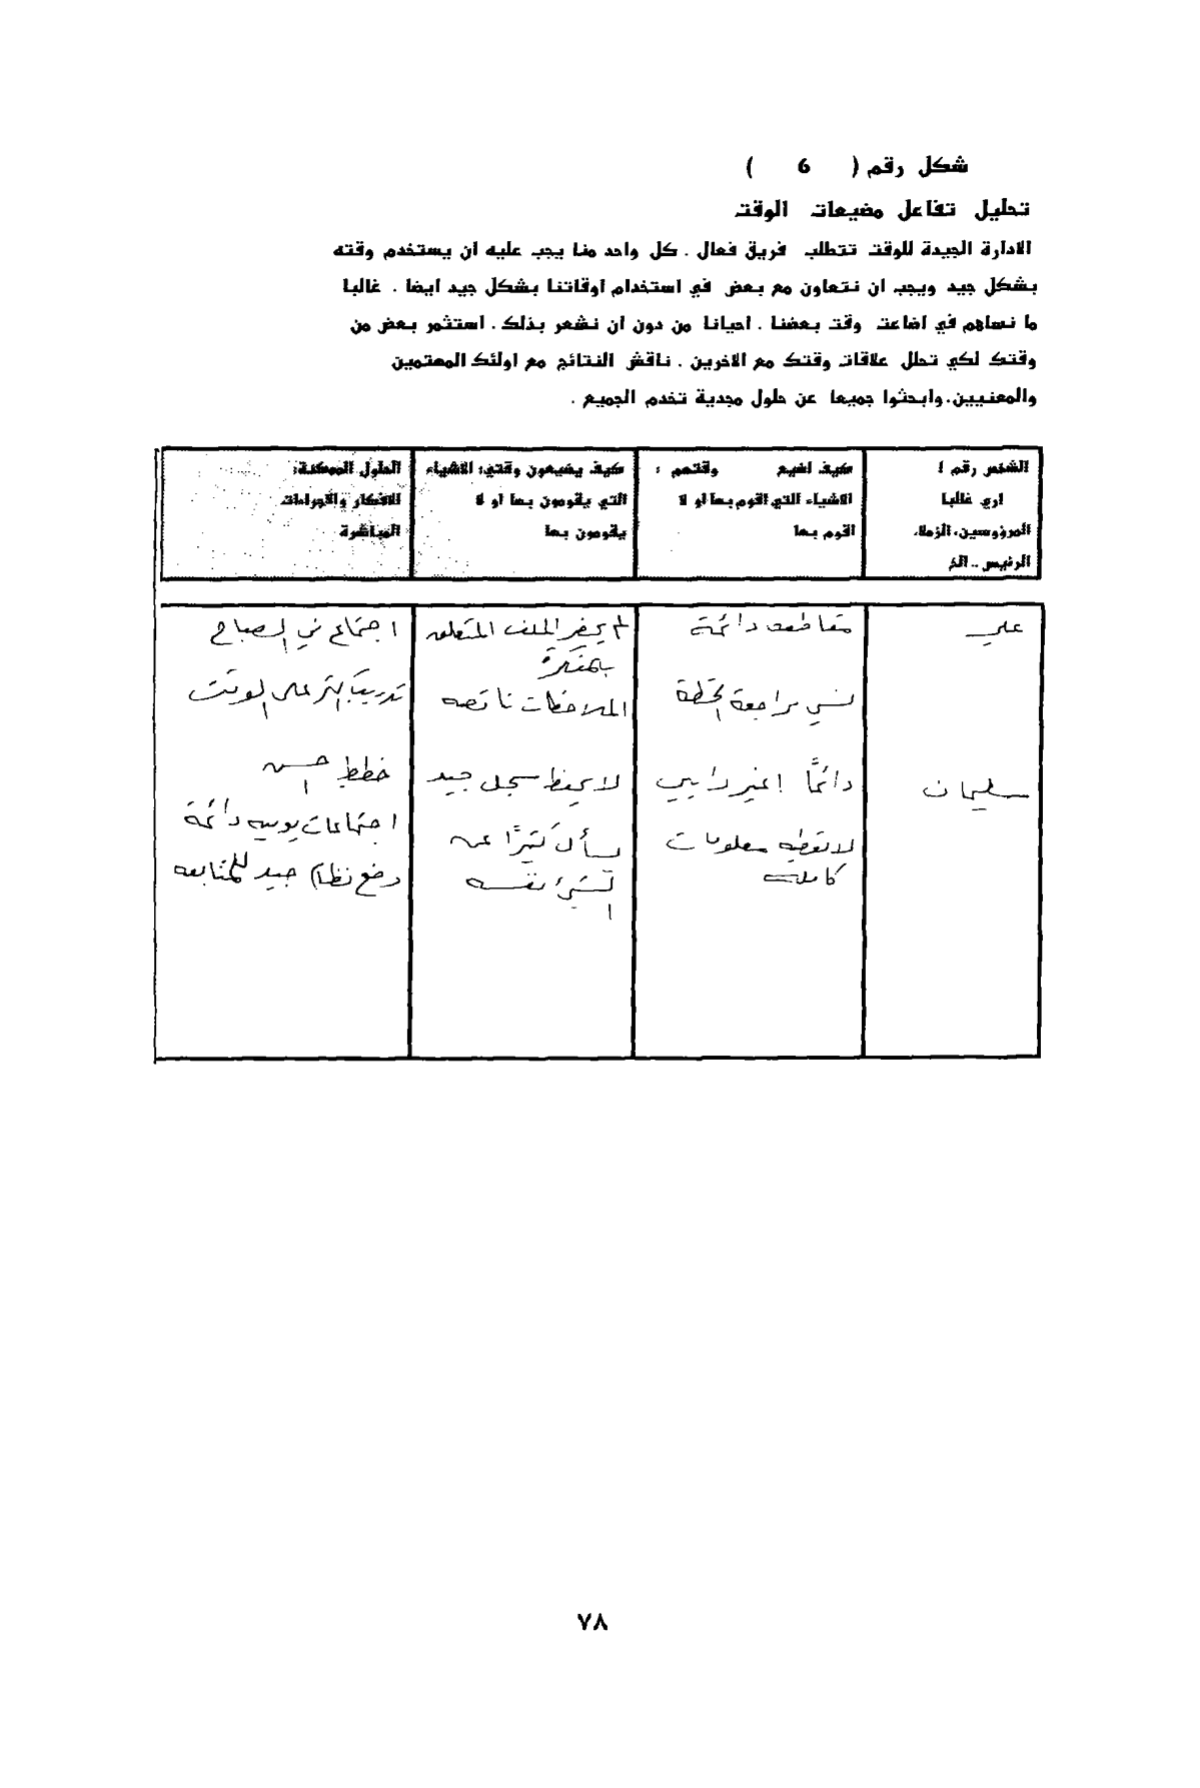 شكل رقم ( 6 )
تحليل تفاعل مضيعات الوقت
الادارة الجيدة للوقت تتطلب فريق فعال . كل واحد منا يجب عليه ان يستخدم وقته
بشكل جيد ويجب ان نتعاون مع بعض في استخدام اوقاتنا بشكل جيد ايضا . غالبا
ما نساهم في اضاعت وقت بعضنا . احيانا من دون ان نشعر بذلك . استثمر بعض من
وقتك لكي تحلل علاقات وقتك مع الاخرين . ناقش النتائج مع اولئك المهتمين
والمعنيين.وابحثوا جميعا عن حلول مجدية تخدم الجميع .
الشخص رقم 1
اري غالبا
المرؤوسين، الزملاء
الرئيس .. الخ
كيف اضيع وقتهم :
الاشياء التي اقوم بها او لا
اقوم بها
كيف يضيعون وقتي: الاشياء
التي يقومون بها او لا
يقومون بها
الحلول الممكنة:
الافكار والاجراءات
المباشرة
علي
مقاطعة دائمة
نسي مراجعة الخطة
لم يحضر الملف المتعلق
بالمذكرة
الملاحظات ناقصه
اجتماع في الصباح
تدريب اكثر على الوقت
سليمان
دائمًا اغير رايي
لا نعطيه معلومات
كامله
لا يحفظ سجل جيد
يسأل كثيرًا عن
الشيئ نفسه
خطط احسن
اجتماعات يوميه دائمة
وضع نظام جيد للمتابعه
٧٨